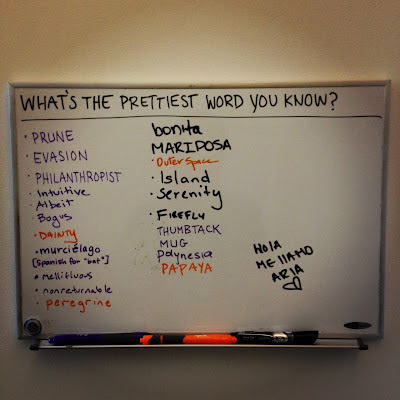 WHAT'S THE PRETTIEST WORD YOU KNOW?
· PRUNE
· EVASION
· PHILANTHROPIST
· Intuitive
· Albeit
Bogus
· DAINTY
· murciélago
[Spanish for "bat"]
· mellifluous
· nonreturnable
· peregrine
bonita
MARIPOSA
· Outer space
· Island
· Serenity
· FIREFLY
THUMBTACK
MUG
Polynesia
PAPAYA
HOLA
ME LLAMO
ARIA